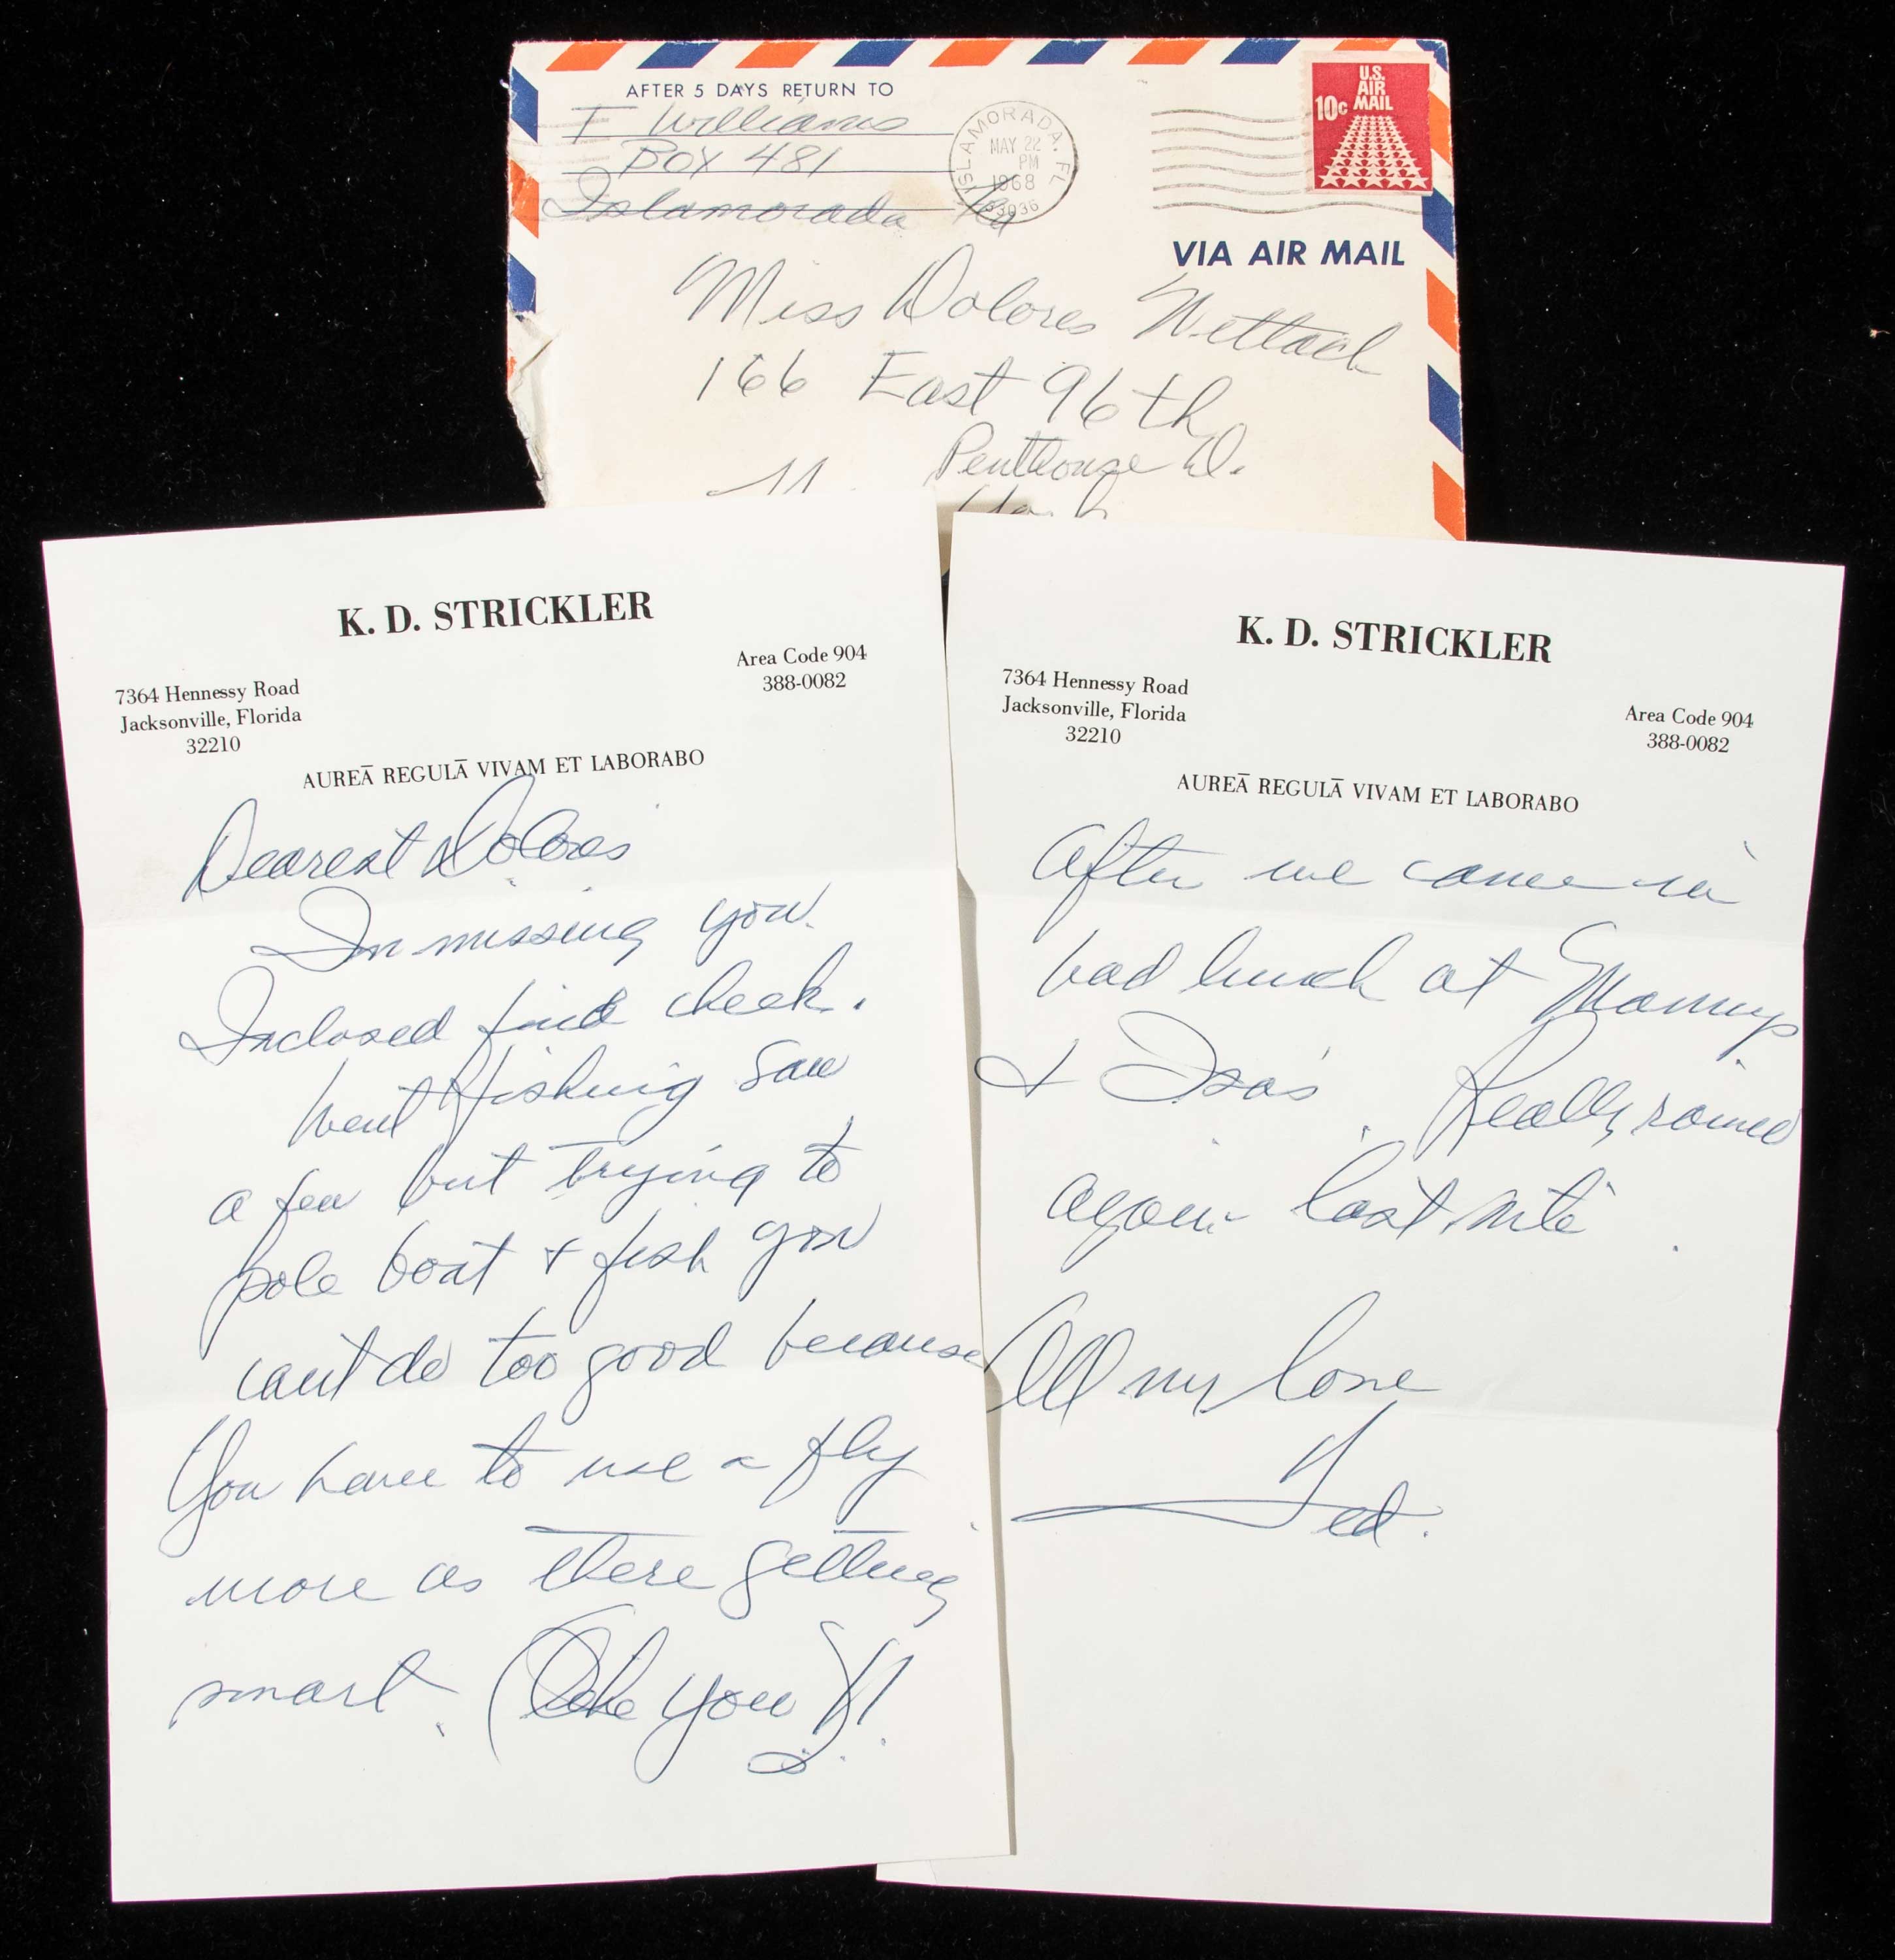 AFTER 5 DAYS RETURN TO
T Williams
BOX 481
Islamorada Fla
ISLAMORADA, FL
MAY 22
PM
1968
33036
U.S.
AIR
MAIL
10c
VIA AIR MAIL
Miss Dolores Wettach
166 East 96th
Penthouse D.
K. D. STRICKLER
7364 Hennessy Road
Jacksonville, Florida
32210
Area Code 904
388-0082
AUREĀ REGULĀ VIVAM ET LABORABO
Dearest Dolores
Im missing you.
Inclosed find check.
Went fishing saw
a few but trying to
pole boat + fish you
cant do too good because
You have to use a fly
more as there getting
smart. (Like you)!!
K. D. STRICKLER
7364 Hennessy Road
Jacksonville, Florida
32210
Area Code 904
388-0082
AUREĀ REGULĀ VIVAM ET LABORABO
After we came in
had lunch at
+ Really rained
again last nite.
All my love
Ted.